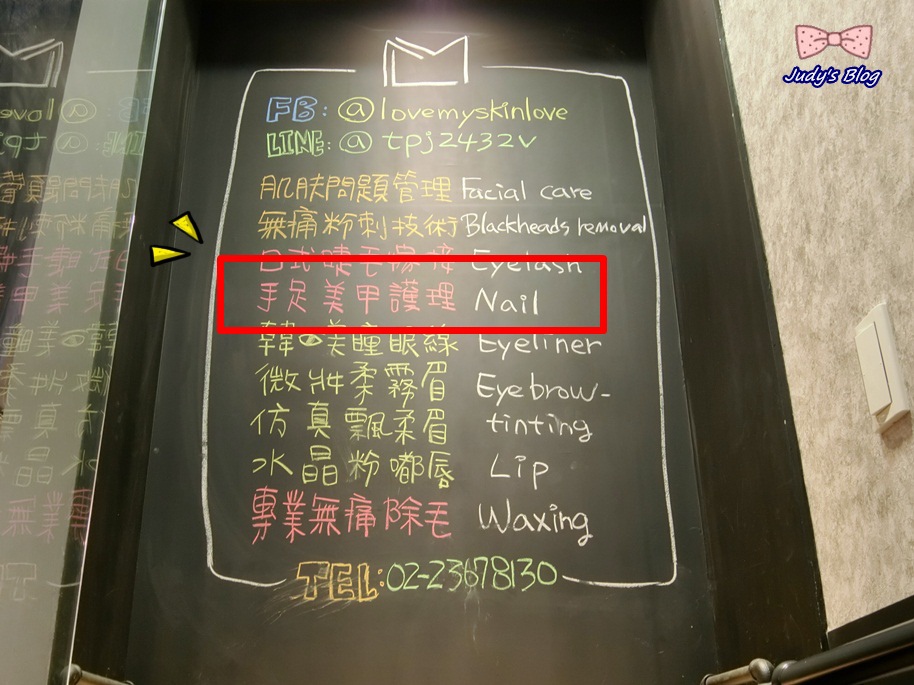 Judy's Blog
FB: @lovemyskinlove
LINE: @tpj2432v
肌膚問題管理 Facial care
無痛粉刺技術 Blackheads removal
日式睫毛嫁接 Eyelash
手足美甲護理 Nail
韓式美瞳眼線 Eyeliner
微妝柔霧眉 Eyebrow-
仿真飄柔眉 tinting
水晶粉嘟唇 Lip
專業無痛除毛 Waxing
TEL:02-23678130